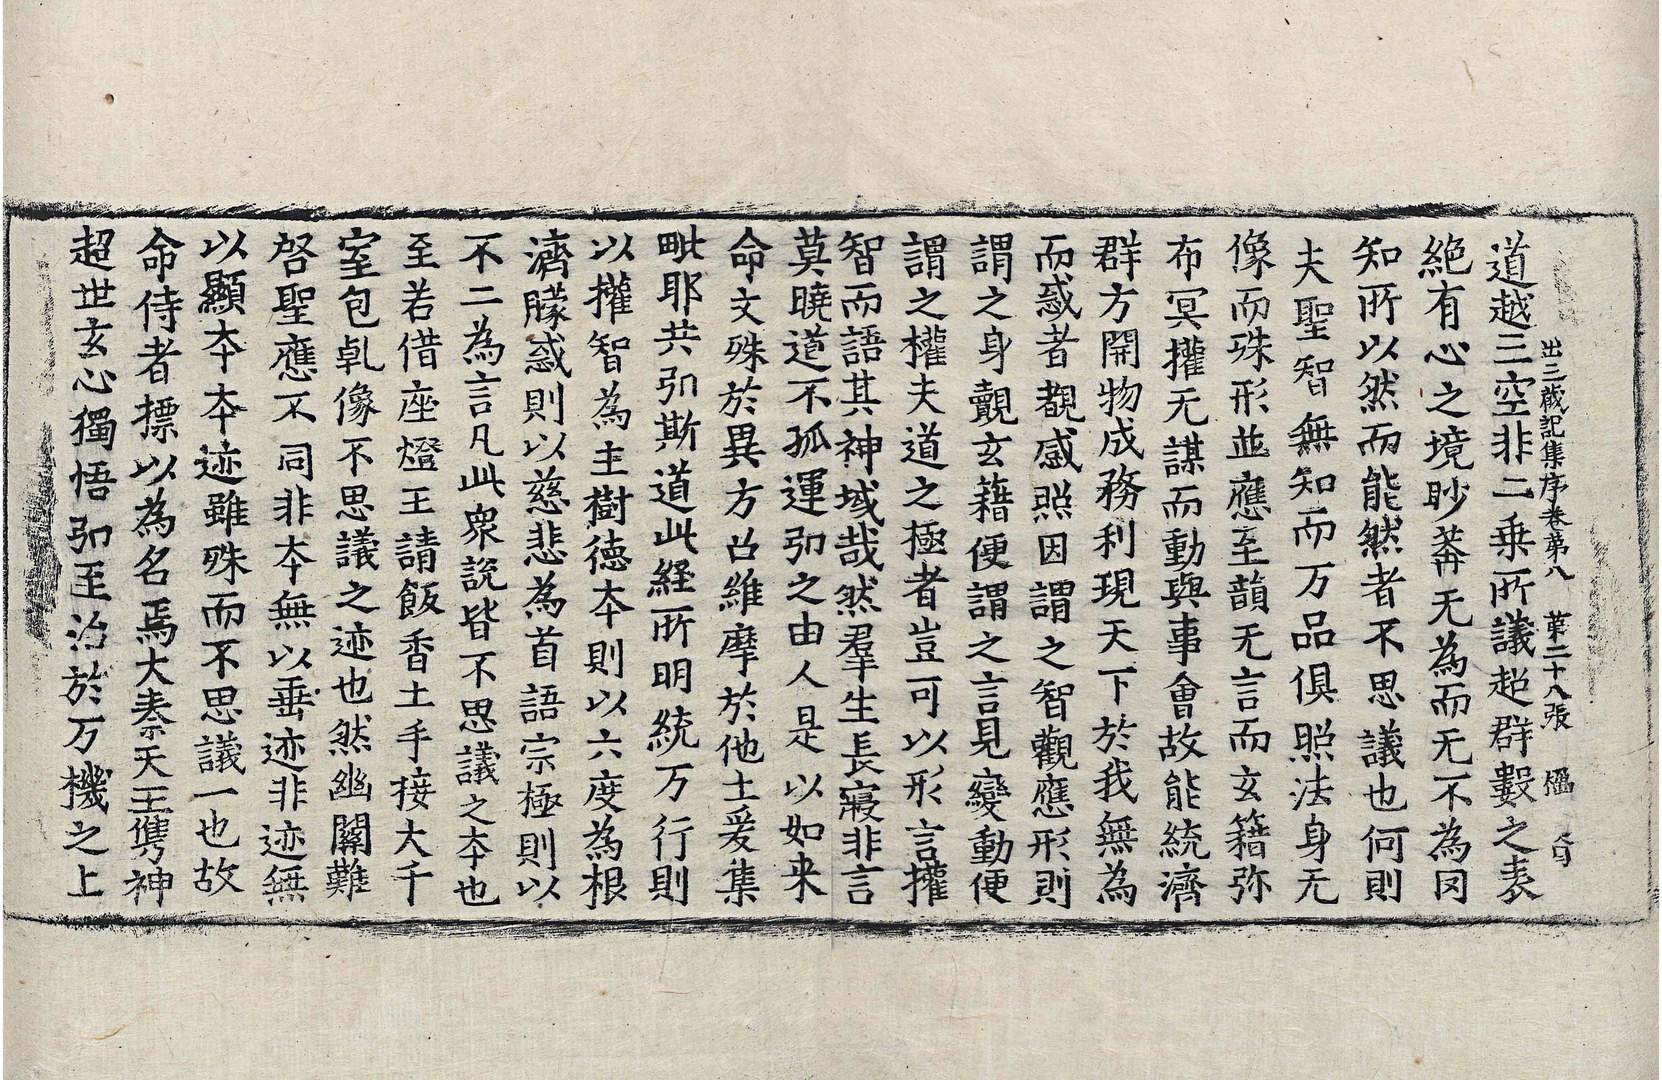 出三藏記集序卷第八 第二十八張
道越三空非二乗所議超群數之表
絶有心之境眇莽无為而无不為罔
知所以然而能然者不思議也何則
夫聖智無知而万品俱照法身无
像而殊形並應至韻无言而玄籍弥
布冥權无謀而動與事會故能統濟
群方開物成務利現天下於我無為
而惑者覩感照因謂之智觀應形則
謂之身覿玄籍便謂之言見變動便
謂之權夫道之極者豈可以形言權
智而語其神域哉然羣生長寢非言
莫曉道不孤運弘之由人是以如来
命文殊於異方召維摩於他土爰集
毗耶共弘斯道此経所明統万行則
以權智為主樹德夲則以六度為根
濟朦惑則以慈悲為首語宗極則以
不二為言凡此衆說皆不思議之夲也
至若借座燈王請飯香土手接大千
室包乹像不思議之迹也然幽關難
啓聖應不同非夲無以垂迹非迹無
以顯夲夲迹雖殊而不思議一也故
命侍者摽以為名焉大秦天王雋神
超世玄心獨悟弘至治於万機之上